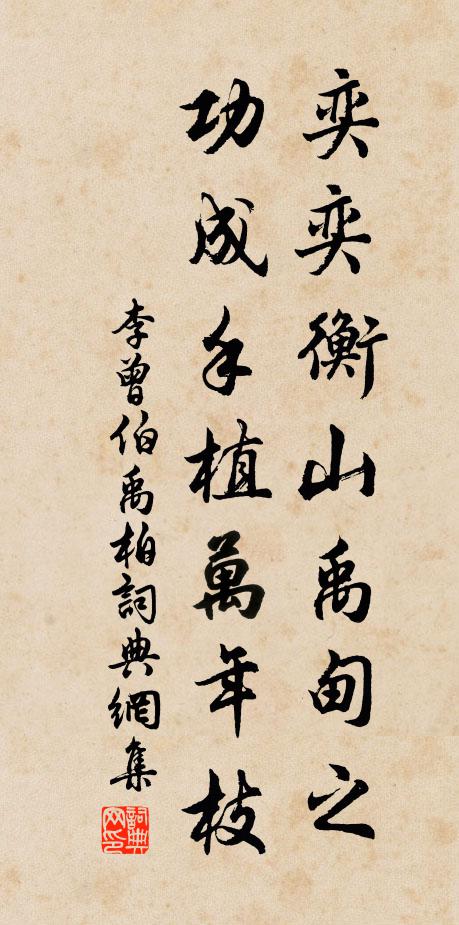 奕奕衡山禹甸之
功成手植萬年枝
李曾伯禹柏詞典網集
詞典網印